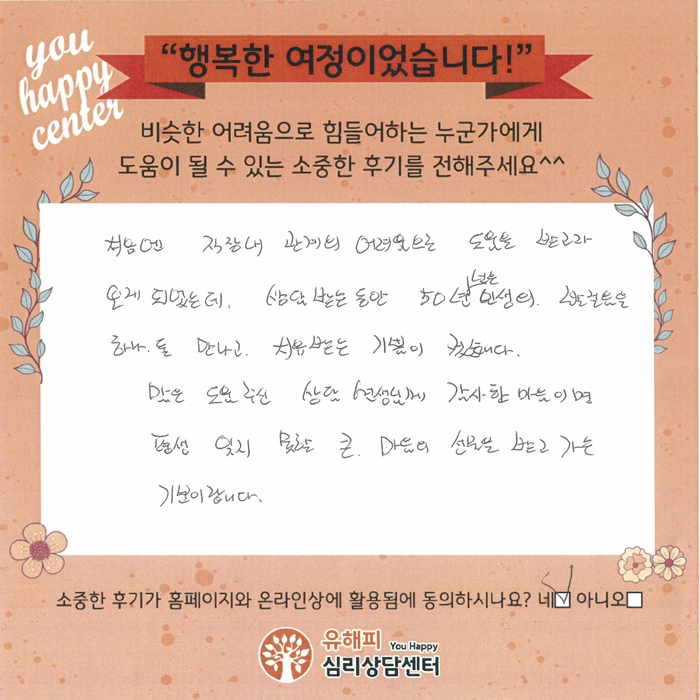 you
happy
center
“행복한 여정이었습니다!”
비슷한 어려움으로 힘들어하는 누군가에게
도움이 될 수 있는 소중한 후기를 전해주세요^^
처음엔 직장내 관계의 어려움으로 도움을 받고자
오게 되었는데, 상담 받는 동안 50년 넘은 인생의
하나 둘 만나고, 치유받는 기분이
많은 도움 주신 상담 선생님께 감사한 마음이며
평생 잊지 못할 큰 마음의 선물을 받고 가는
기분이랍니다.
소중한 후기가 홈페이지와 온라인상에 활용됨에 동의하시나요? 네☑ 아니오☐
유해피 You Happy
심리상담센터